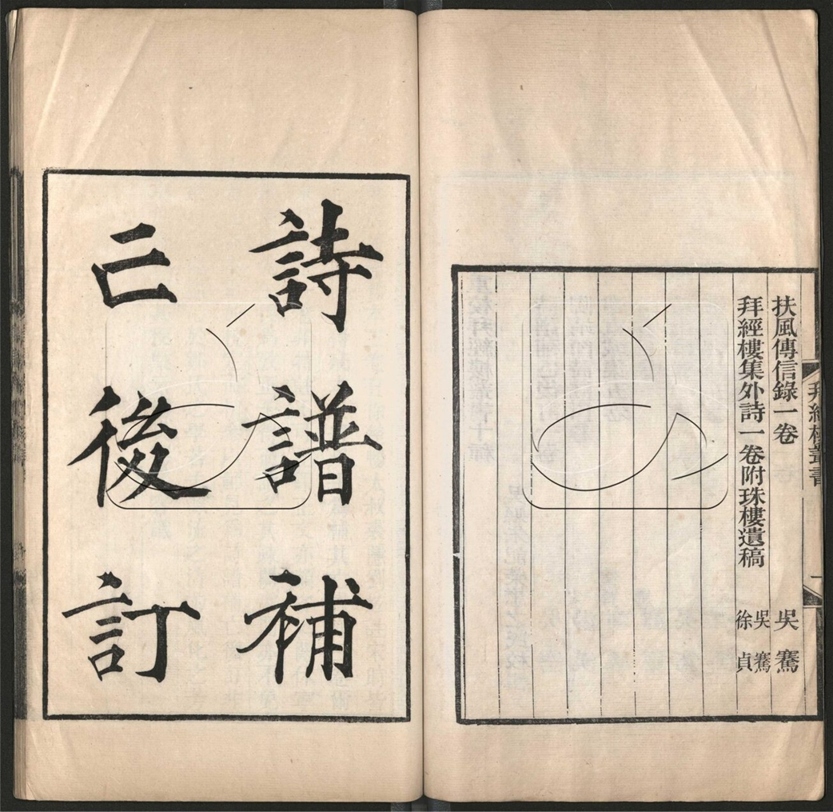 拜經樓叢書
一
扶風傳信錄一卷 吳騫
拜經樓集外詩一卷附珠樓遺稿 吳騫 徐貞
詩譜補
亡後訂